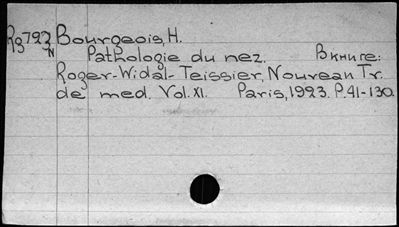 Rg 793 Bourgeois, H.
N Pathologie du nez. В книге:
Roger-Widal-Teissier, Nouveau Tr.
de med. Vol. XI. Paris, 1923. P. 41-130.